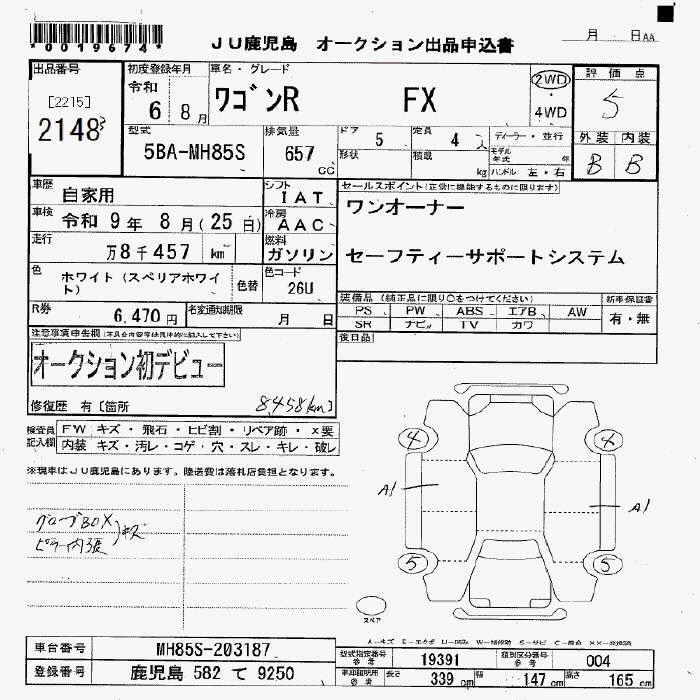 *0019674*
JU鹿児島 オークション出品申込書
月 日AA
出品番号
[2215]
2148
初度登録年月
令和
6 8月
車名・グレード
ワゴンR FX
2WD
・
4WD
評価点
5
外装 内装
B B
型式
5BA-MH85S
排気量
657
CC
ドア
5
定員
4人
形状
積載
kg
ディーラー・並行
モデル年式 年
ハンドル 左・右
車歴
自家用
シフト
IAT
車検
令和 9年 8月(25日)
冷房
AAC
走行
万8千457 km
燃料
ガソリン
色
ホワイト(スペリアホワイト)
色替
色コード
26U
R券
6,470円
名変通知期限
月 日
セールスポイント(正常に機能するものに限ります)
ワンオーナー
セーフティーサポートシステム
装備品(純正品に限り○をつけてください)
新車保証書
PS PW ABS エアB AW
SR ナビ TV カワ
有・無
後日品
注意事項申告欄
オークション初デビュー
修復歴 有〔箇所
8,458km〕
検査員記入欄
FW キズ・飛石・ヒビ割・リペア跡・X要
内装 キズ・汚レ・コゲ・穴・スレ・キレ・破レ
※現車はJU鹿児島にあります。陸送費は落札店負担となります。
グローブBOX
ピラー内張
4 4
A1 A1
5 5
スペア
車台番号
MH85S-203187
登録番号
鹿児島 582 て 9250
型式指定番号
参考
19391
類別区分番号
参考
004
車庫証明用
参考
長さ
339 cm
幅
147 cm
高さ
165 cm